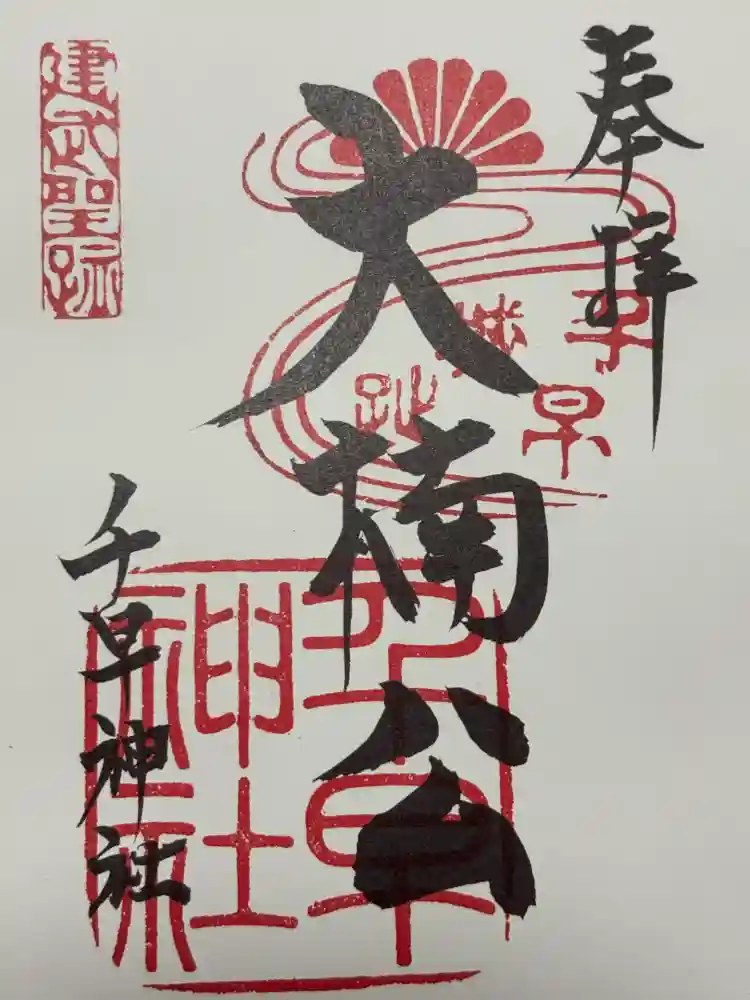 奉拝
千早
城趾
大楠公
千早
神社
建武聖跡
千早神社